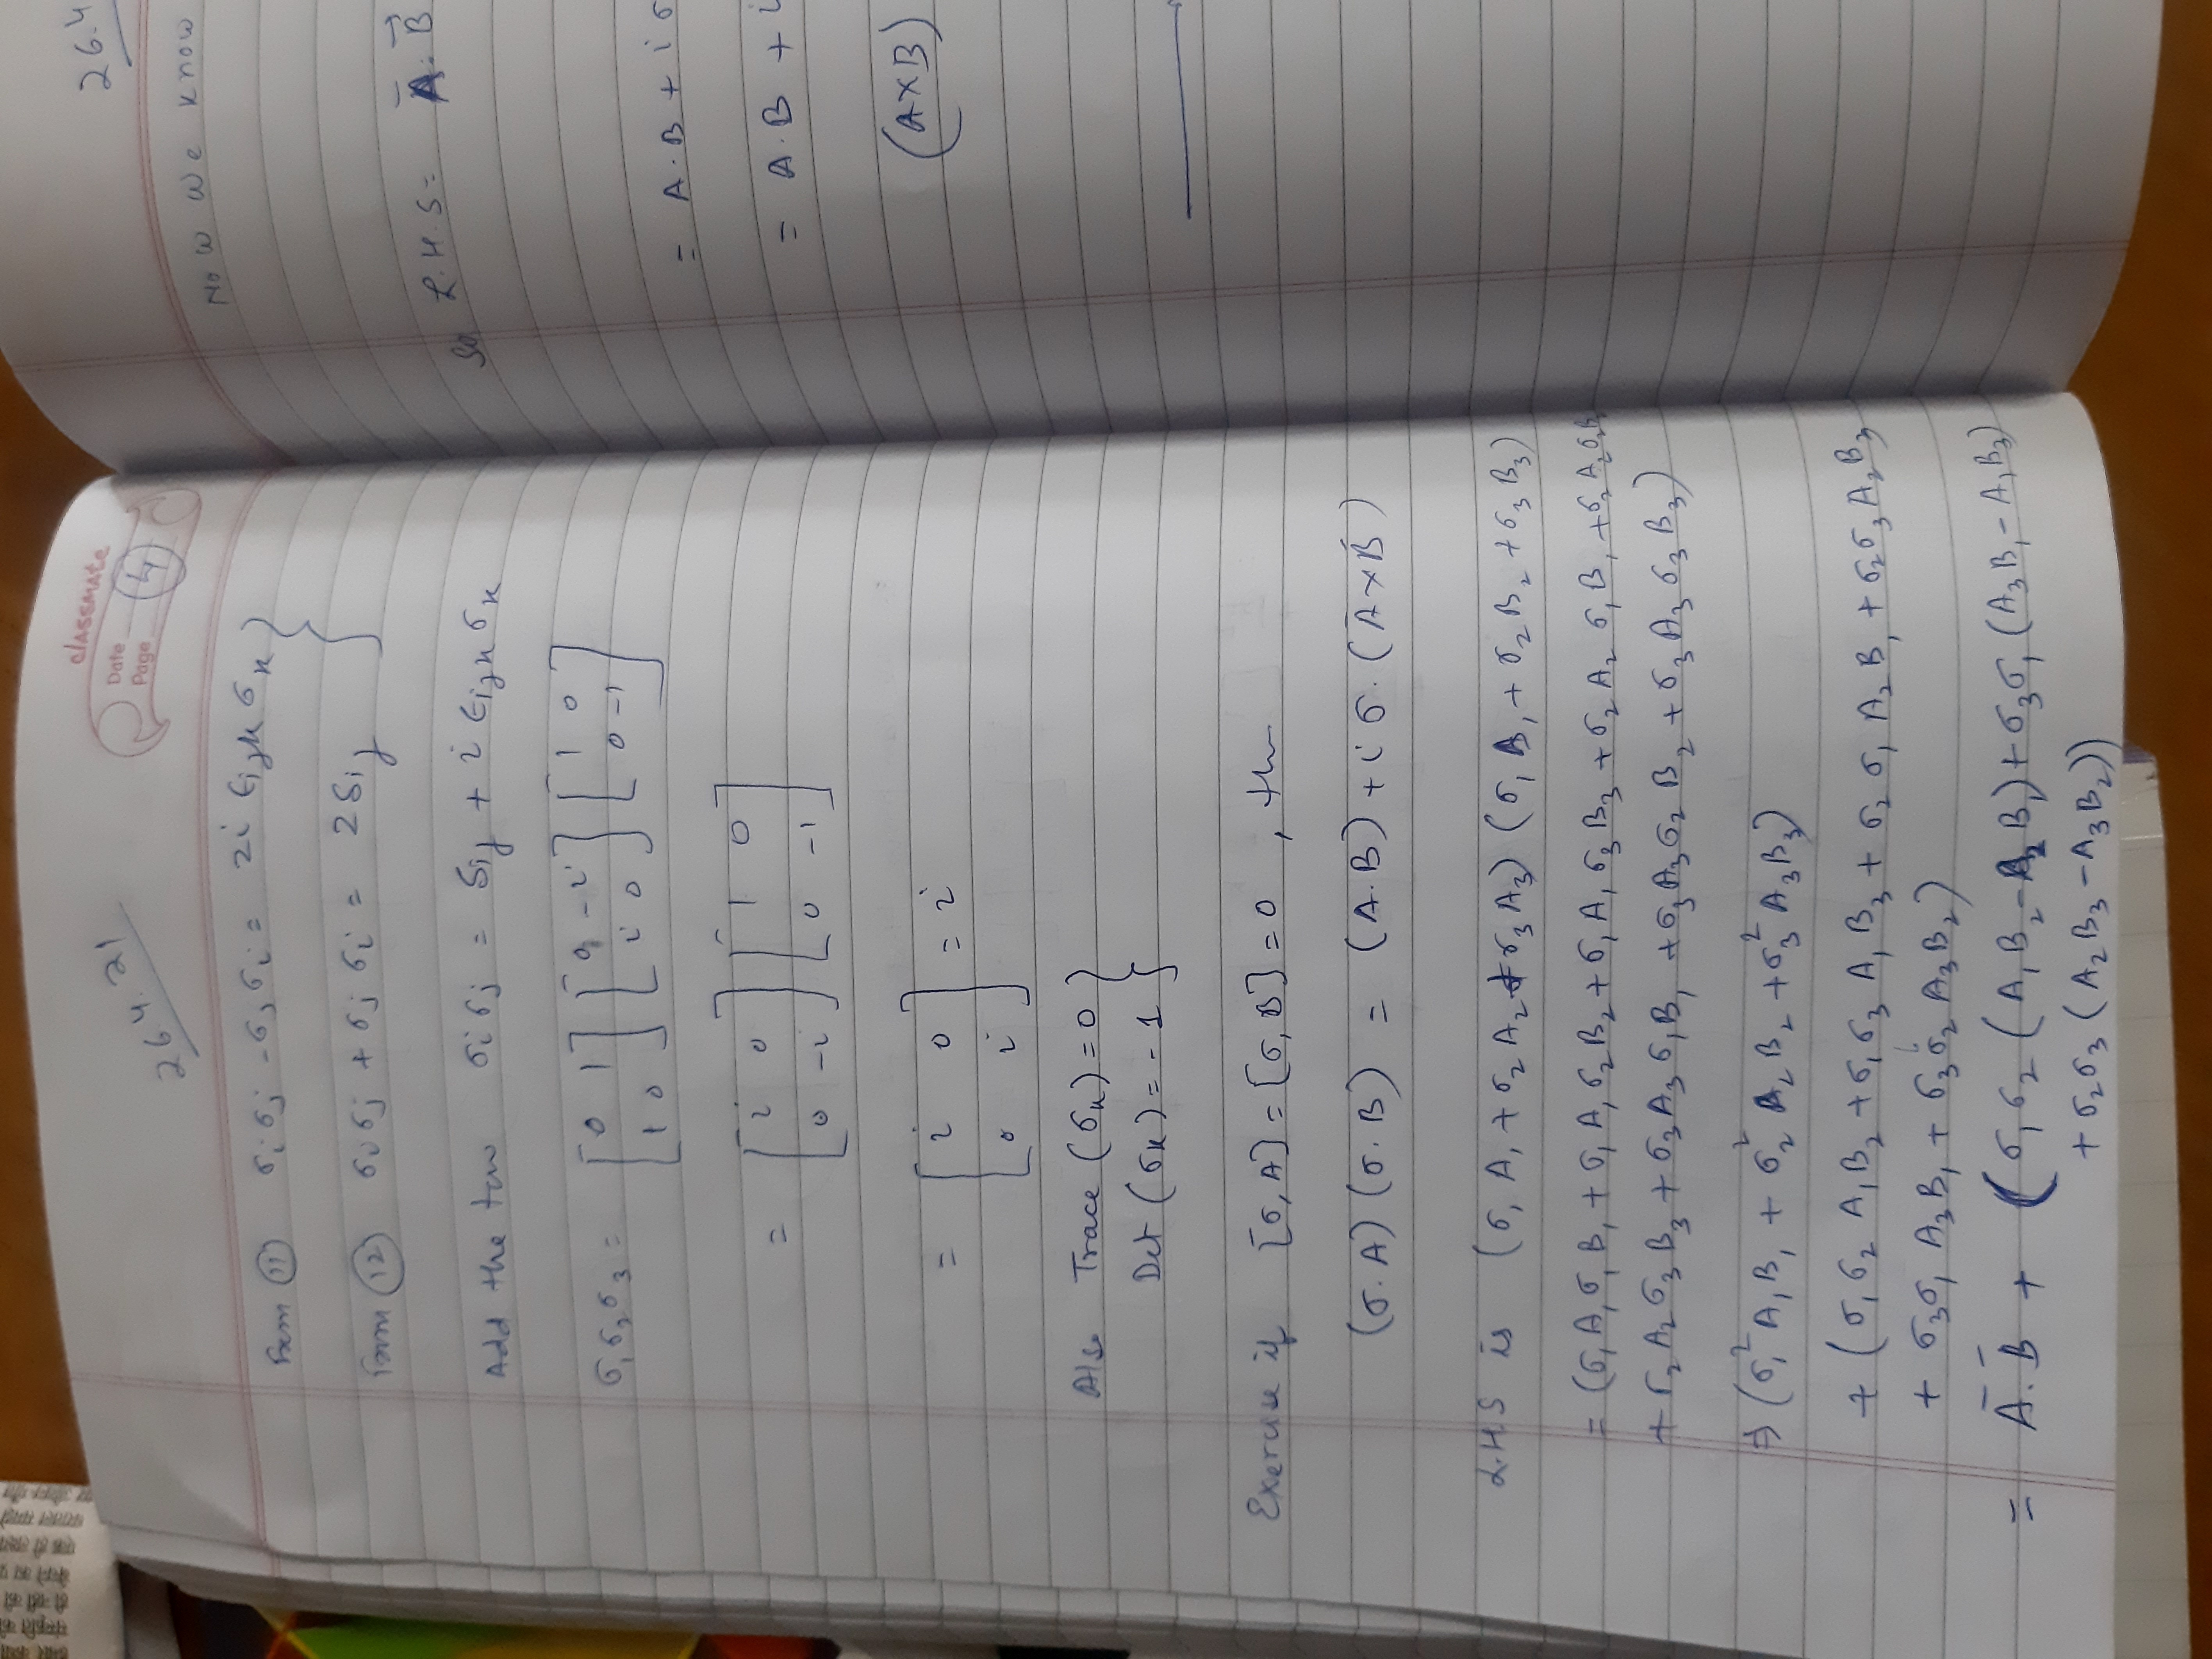 classmate
Date
Page 4
26.4.21
From (11) σᵢσⱼ - σⱼσᵢ = 2i ϵᵢⱼₖ σₖ }
From (12) σᵢσⱼ + σⱼσᵢ = 2δᵢⱼ
Add the two σᵢσⱼ = δᵢⱼ + i ϵᵢⱼₖ σₖ
σ₁σ₂σ₃ = [0 1 / 1 0] [0 -i / i 0] [1 0 / 0 -1]
= [i 0 / 0 -i] [1 0 / 0 -1]
= [i 0 / 0 i] = i
Also Trace (σₖ) = 0 }
Det (σₖ) = -1
Exercise if [σ, A] = [σ, B] = 0, then
(σ.A) (σ.B) = (A.B) + i σ. (A×B)
L.H.S is (σ₁A₁ + σ₂A₂ + σ₃A₃) (σ₁B₁ + σ₂B₂ + σ₃B₃)
= (σ₁A₁σ₁B₁ + σ₁A₁σ₂B₂ + σ₁A₁σ₃B₃ + σ₂A₂σ₁B₁ + σ₂A₂σ₂B₂
+ σ₂A₂σ₃B₃ + σ₃A₃σ₁B₁ + σ₃A₃σ₂B₂ + σ₃A₃σ₃B₃)
⇒ (σ₁²A₁B₁ + σ₂²A₂B₂ + σ₃²A₃B₃)
+ (σ₁σ₂A₁B₂ + σ₁σ₃A₁B₃ + σ₂σ₁A₂B₁ + σ₂σ₃A₂B₃
+ σ₃σ₁A₃B₁ + σ₃σ₂A₃B₂)
= A̅.B̅ + (σ₁σ₂(A₁B₂ - A₂B₁) + σ₃σ₁(A₃B₁ - A₁B₃)
+ σ₂σ₃(A₂B₃ - A₃B₂))
26.4
Now we know
So L.H.S = A.B
= A.B + i σ
= A.B + i
(A×B)